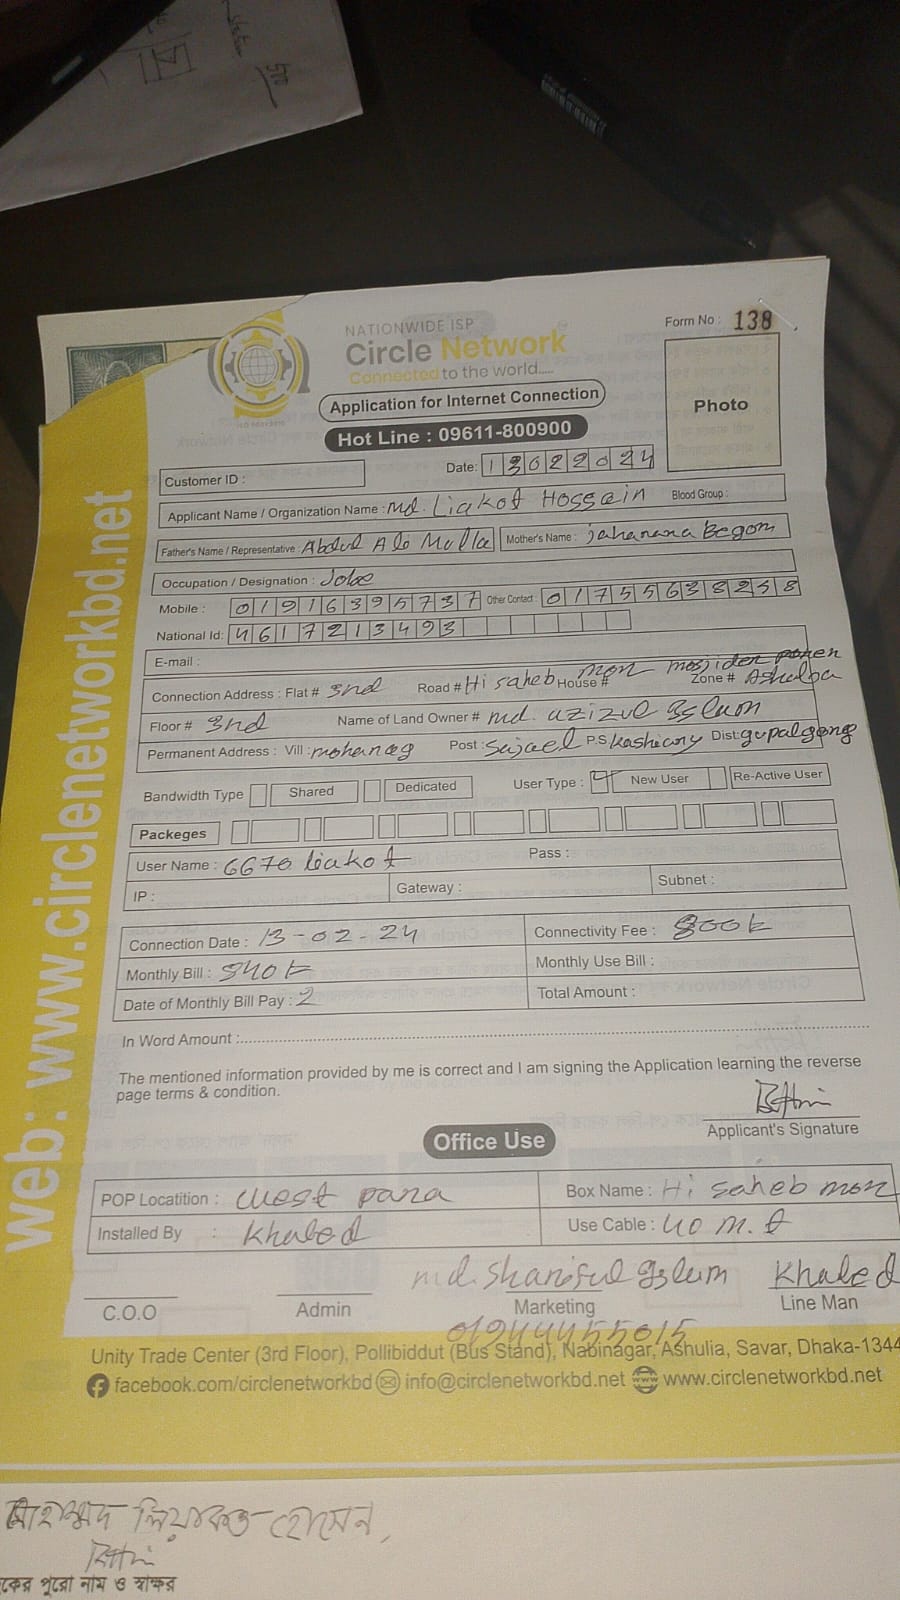 500
NATIONWIDE ISP
Circle Network
Connected to the world.....
Form No : 138
Application for Internet Connection
Photo
Hot Line : 09611-800900
Customer ID :
Date: 13022024
Applicant Name / Organization Name : md. Liakot Hossain Blood Group :
Father's Name / Representative : Abdul Molla Mother's Name : jahanana Begom
Occupation / Designation : Jobe
Mobile : 01916395737 Other Contact : 01755638248
National Id: 4617213493
E-mail :
Connection Address : Flat # 3nd Road # Hi saheb House # mon mosjider Zone # Ashulba
Floor # 3nd Name of Land Owner # md. uzizul Islum
Permanent Address : Vill : Post : P.S Kashiany Dist: gupalgong
Bandwidth Type Shared Dedicated User Type : New User Re-Active User
Packeges
User Name : 6678 liakot Pass :
IP : Gateway : Subnet :
Connection Date : 13-02-24 Connectivity Fee : 800t
Monthly Bill : 840t Monthly Use Bill :
Date of Monthly Bill Pay : 2 Total Amount :
In Word Amount :
The mentioned information provided by me is correct and I am signing the Application learning the reverse
page terms & condition.
Applicant's Signature
Office Use
POP Locatition : west para Box Name : Hi saheb mon
Installed By : Khaled Use Cable : 40 m.t
md. Shariful Islum Khaled
C.O.O Admin Marketing Line Man
01944455015
Unity Trade Center (3rd Floor), Pollibiddut (Bus Stand), Nabinagar, Ashulia, Savar, Dhaka-1344
facebook.com/circlenetworkbd info@circlenetworkbd.net www.circlenetworkbd.net
web: www.circlenetworkbd.net
মোহাম্মদ লিয়াকত হোসেন,
কের পুরো নাম ও স্বাক্ষর